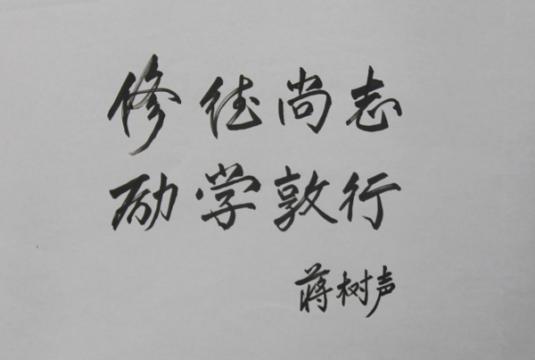 修德尚志
励学敦行
蒋树声